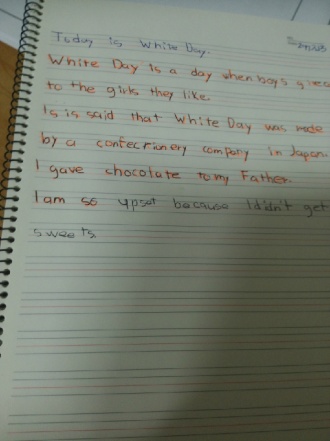 Today is White Day.
White Day is a day when boys
to the girls they like.
Is is said that White Day was made
by a confectionery company in Japan.
I gave chocolate to my Father.
I am so ypsat because I didn't get
sweets.